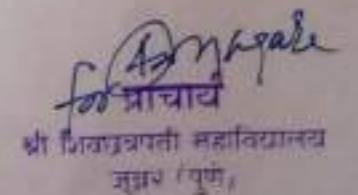 for
प्राचार्य
श्री शिवछत्रपती महाविद्यालय
जुन्नर (पुणे)